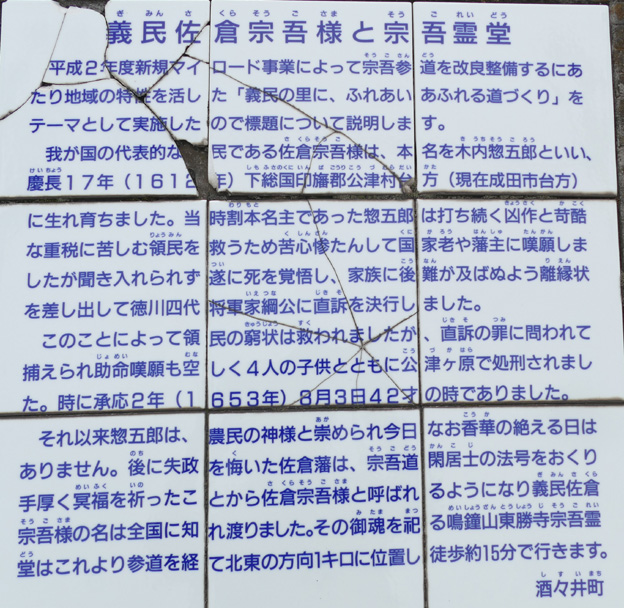 義民佐倉宗吾様と宗吾霊堂
平成2年度新規マイロード事業によって宗吾参道を改良整備するにあ
たり地域の特性を活した「義民の里に、ふれあいあふれる道づくり」を
テーマとして実施したので標題について説明します。
我が国の代表的な 民である佐倉宗吾様は、本名を木内惣五郎といい、
慶長17年(1612年)下総国印旛郡公津村台方(現在成田市台方)
に生れ育ちました。当時割本名主であった惣五郎は打ち続く凶作と苛酷
な重税に苦しむ領民を救うため苦心惨たんして国家老や藩主に嘆願しま
したが聞き入れられず遂に死を覚悟し、家族に後難が及ばぬよう離縁状
を差し出して徳川四代将軍家綱公に直訴を決行しました。
このことによって領民の窮状は救われましたが、直訴の罪に問われて
捕えられ助命嘆願も空しく4人の子供とともに公津ヶ原で処刑されまし
た。時に承応2年(1653年)8月3日42才の時でありました。
それ以来惣五郎は、農民の神様と崇められ今日なお香華の絶える日は
ありません。後に失政を悔いた佐倉藩は、宗吾道閑居士の法号をおくり
手厚く冥福を祈ったことから佐倉宗吾様と呼ばれるようになり義民佐倉
宗吾様の名は全国に知れ渡りました。その御魂を祀る鳴鐘山東勝寺宗吾霊
堂はこれより参道を経て北東の方向1キロに位置し徒歩約15分で行きます。
酒々井町